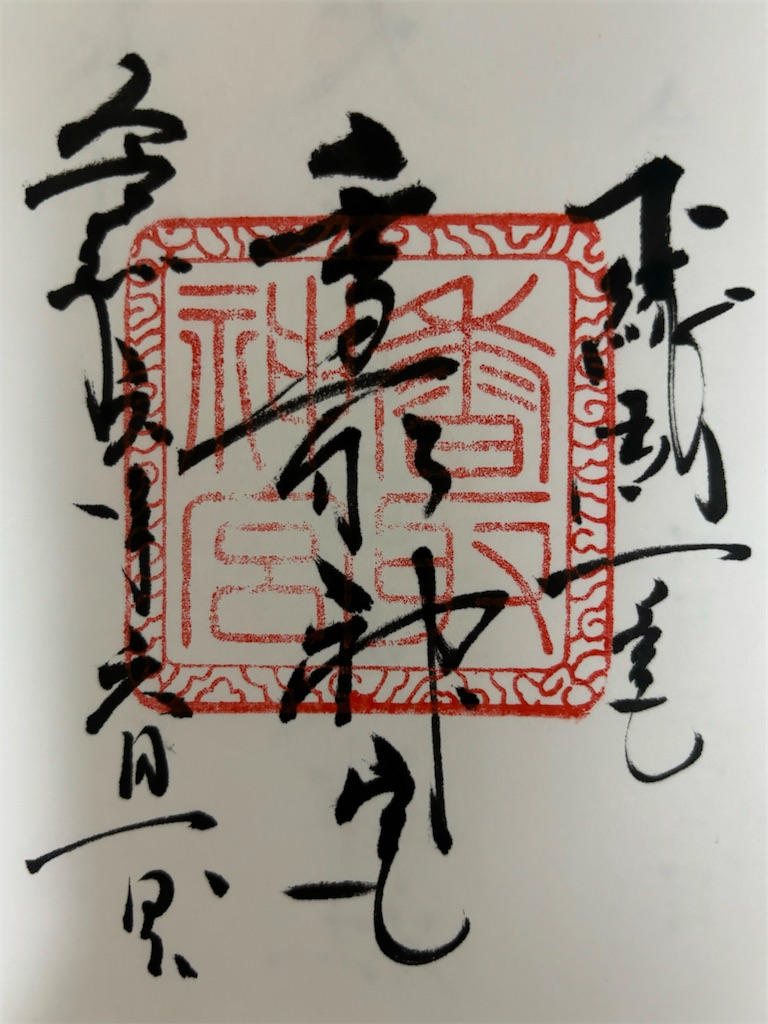 下総國一宮
香取神宮
令和年六月一日
香取神宮